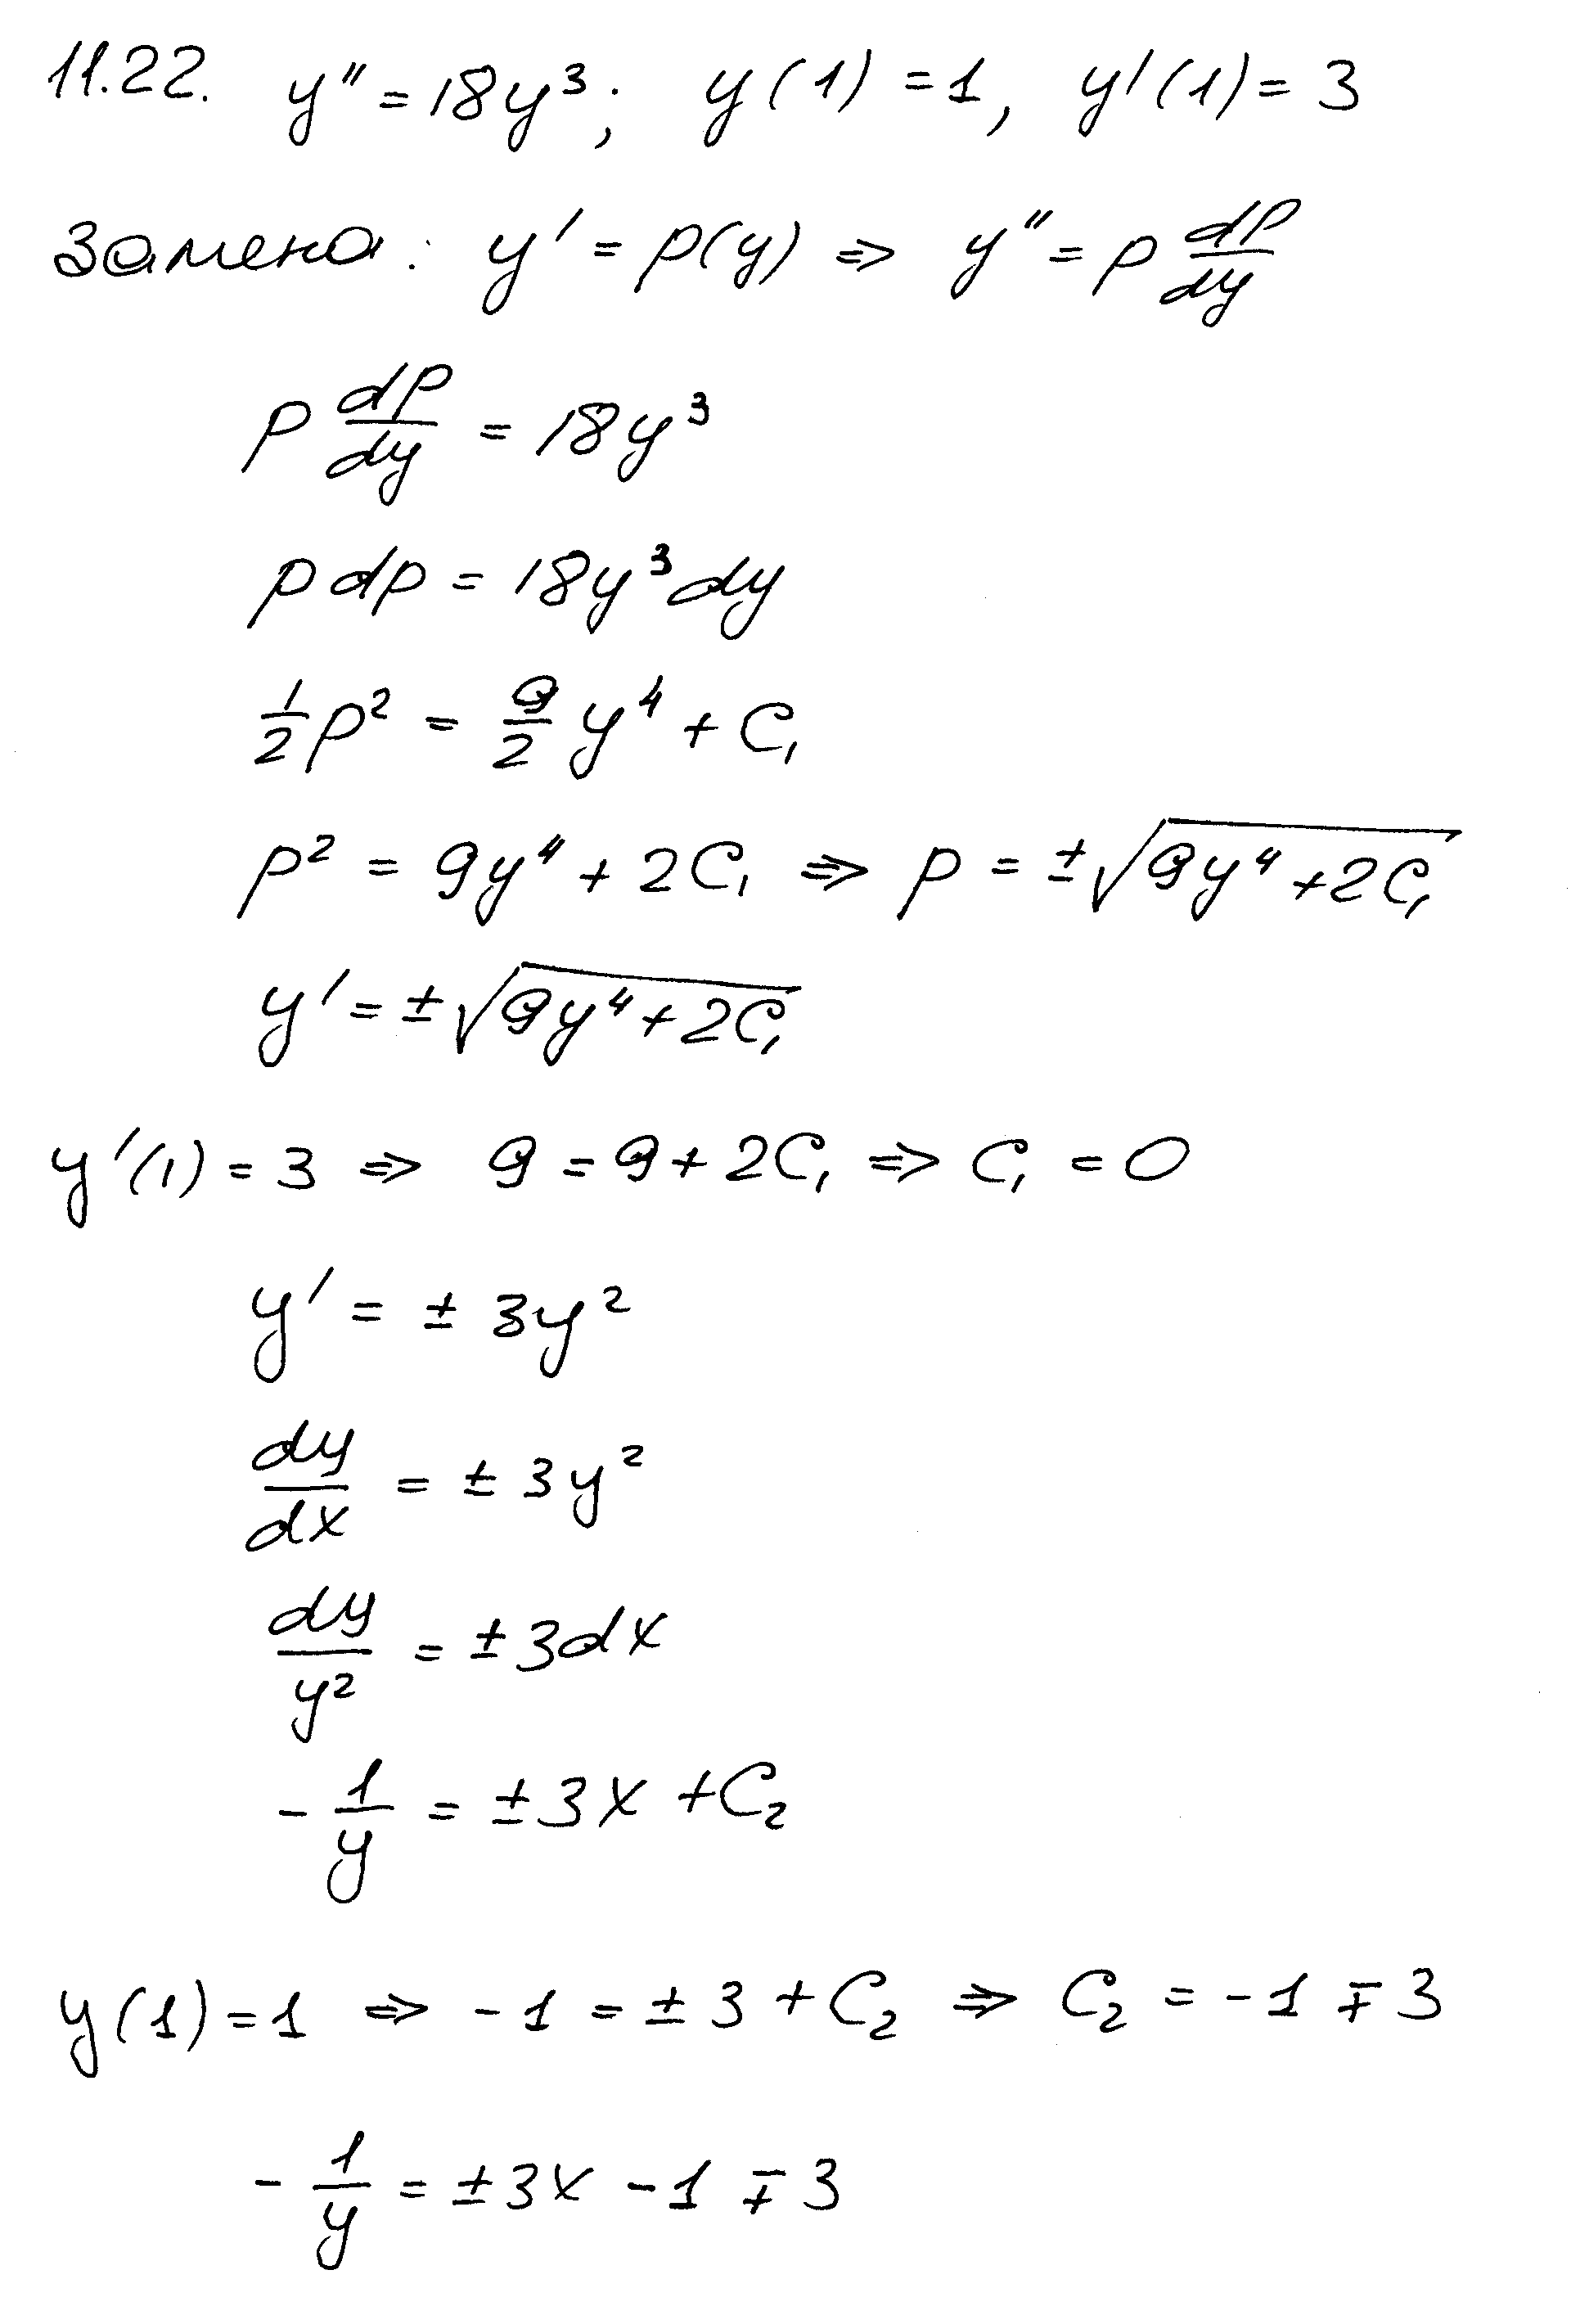 11.22. y'' = 18y³; y(1) = 1, y'(1) = 3
Замена: y' = p(y) ⇒ y'' = p dp/dy
p dp/dy = 18y³
p dp = 18y³dy
1/2 p² = 9/2 y⁴ + C₁
p² = 9y⁴ + 2C₁ ⇒ p = ±√(9y⁴ + 2C₁)
y' = ±√(9y⁴ + 2C₁)
y'(1) = 3 ⇒ 9 = 9 + 2C₁ ⇒ C₁ = 0
y' = ± 3y²
dy/dx = ± 3y²
dy/y² = ± 3dx
- 1/y = ± 3x + C₂
y(1) = 1 ⇒ -1 = ± 3 + C₂ ⇒ C₂ = -1 ∓ 3
- 1/y = ± 3x - 1 ∓ 3